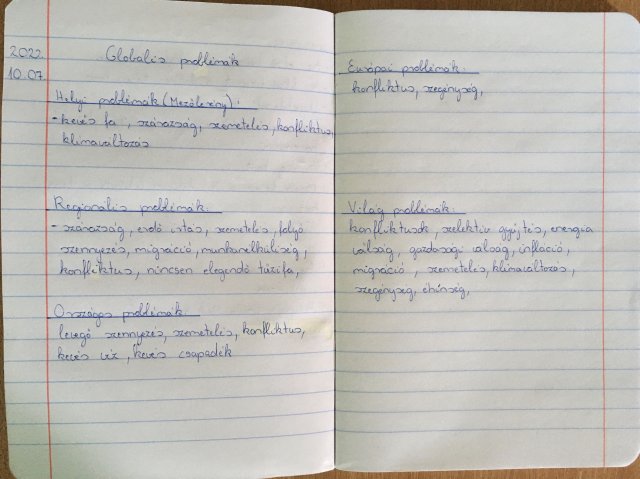 2022.
10.07.
Globalis problémák
Helyi problémák (Mezőlexény):
- kevés fa, szárazság, szemetelés, konfliktus,
klímaváltozás
Regionális problémák:
- szárazság, erdő írtás, szemetelés, folyó
szennyezés, migráció, munkanelküliség,
konfliktus, nincsen elegendő tűzifa,
Országos problémák:
levegő szennyezés, szemetelés, konfliktus,
kevés víz, kevés csapadék
Európai problémák:
konfliktus, szegénység,
Világ problémák:
konfliktusok, szelektív gyűjtés, energia
válság, gazdasági válság, infláció,
migráció, szemetelés, klímaváltozás,
szegénység, éhínség,